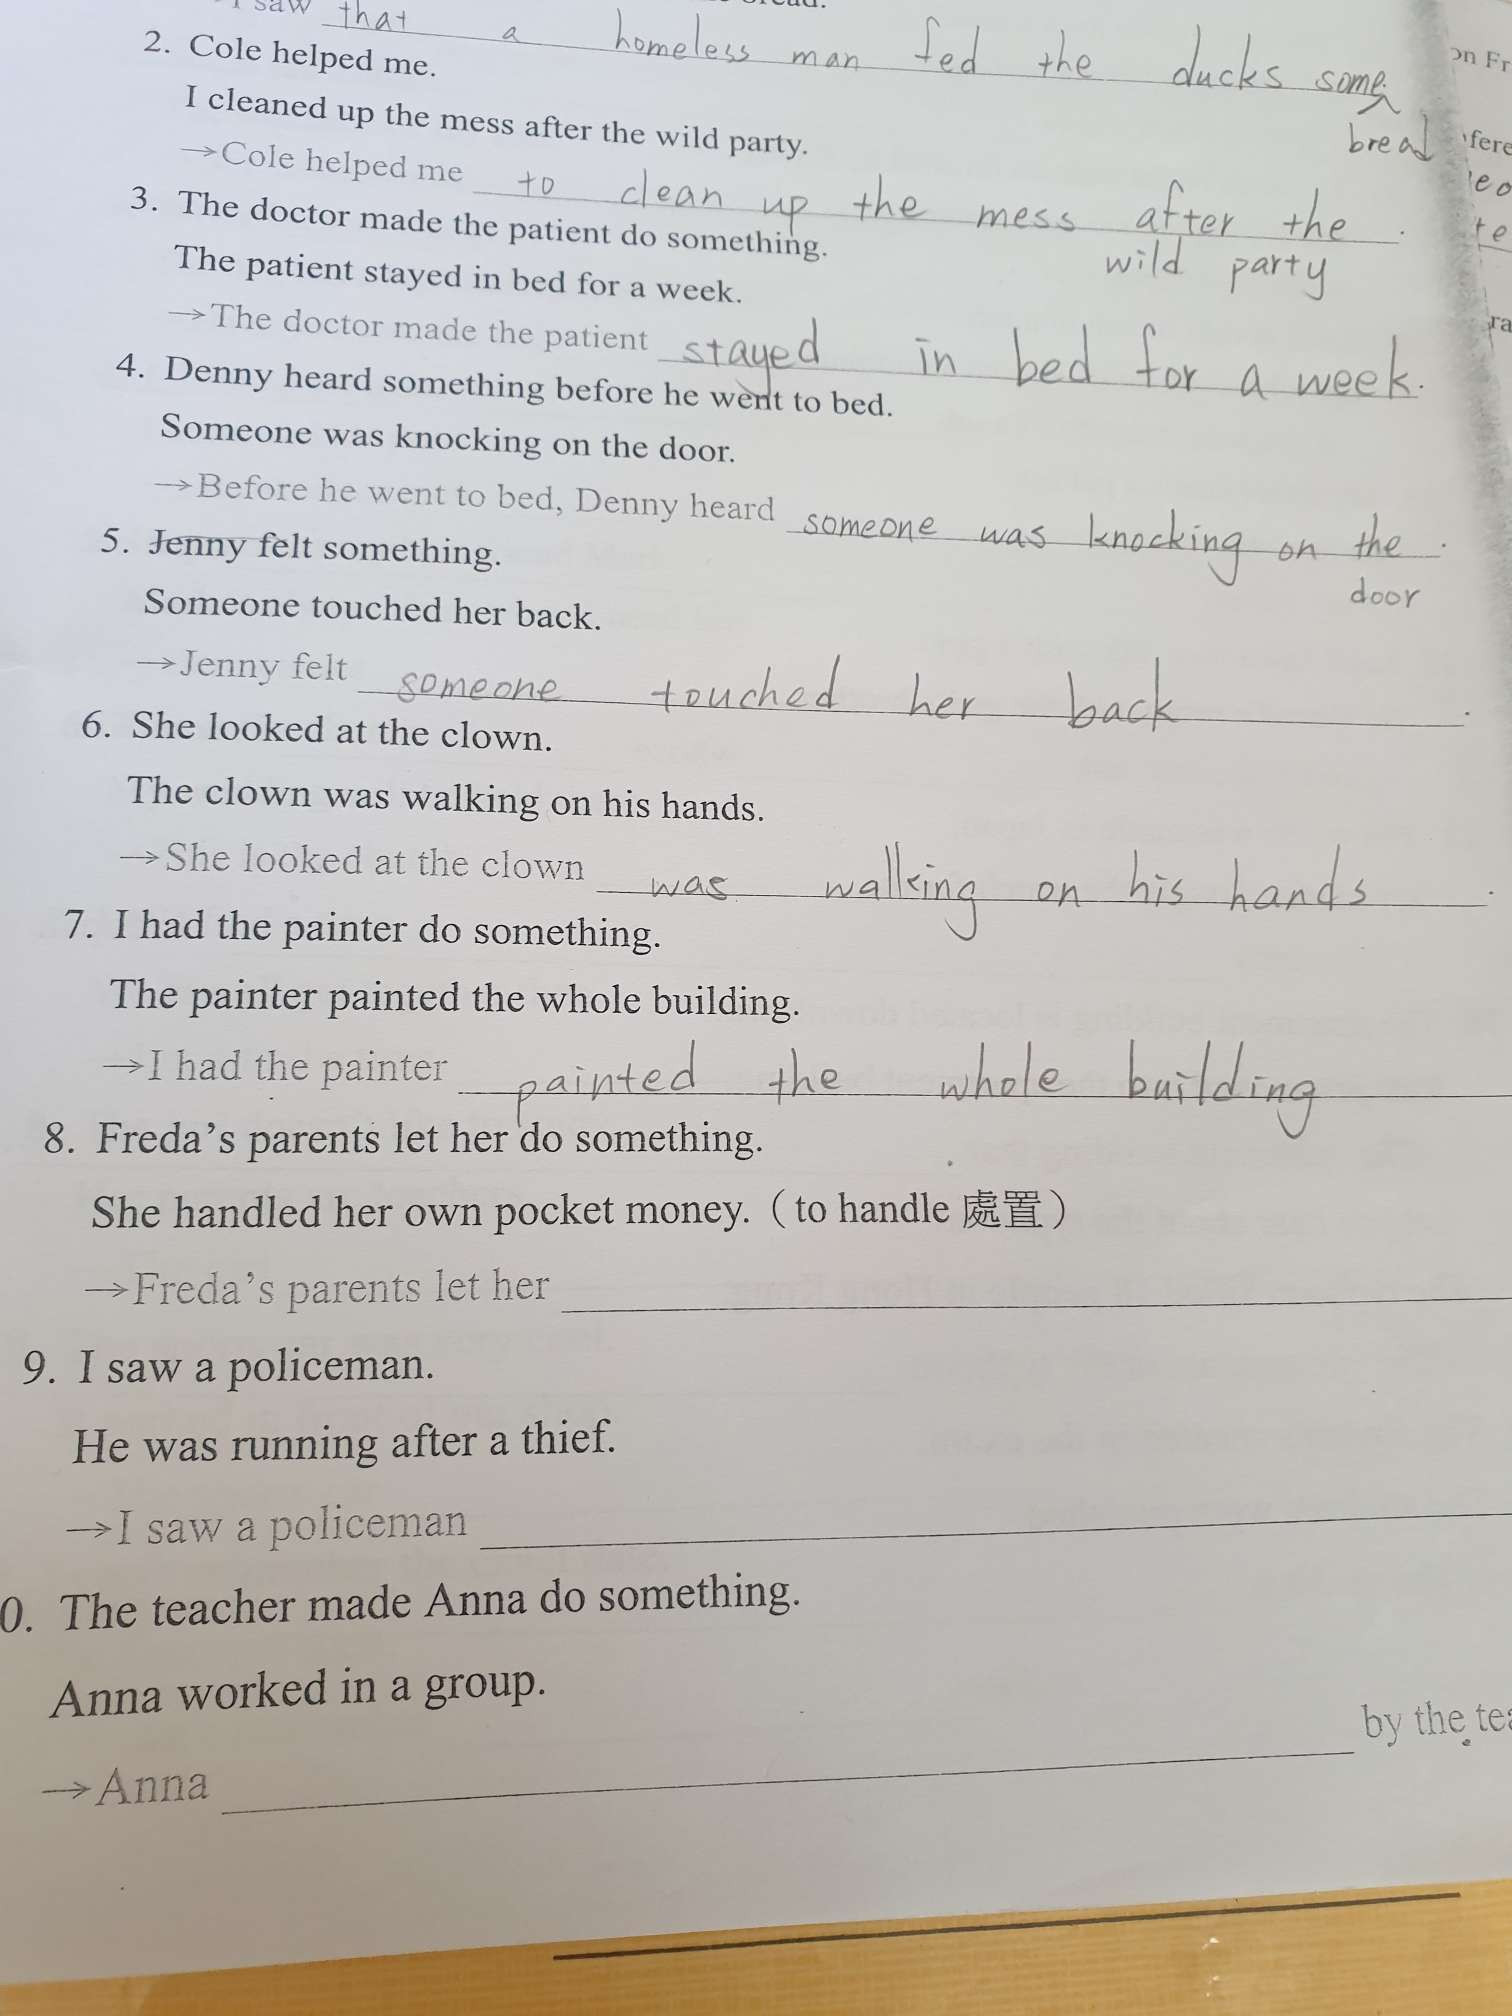 saw that a homeless man fed the ducks some bread
2. Cole helped me.
I cleaned up the mess after the wild party.
→Cole helped me to clean up the mess after the wild party.
3. The doctor made the patient do something.
The patient stayed in bed for a week.
→The doctor made the patient stayed in bed for a week.
4. Denny heard something before he went to bed.
Someone was knocking on the door.
→Before he went to bed, Denny heard someone was knocking on the door.
5. Jenny felt something.
Someone touched her back.
→Jenny felt someone touched her back.
6. She looked at the clown.
The clown was walking on his hands.
→She looked at the clown was walking on his hands.
7. I had the painter do something.
The painter painted the whole building.
→I had the painter painted the whole building
8. Freda's parents let her do something.
She handled her own pocket money.（to handle 處置）
→Freda's parents let her
9. I saw a policeman.
He was running after a thief.
→I saw a policeman
0. The teacher made Anna do something.
Anna worked in a group.
→Anna by the tea